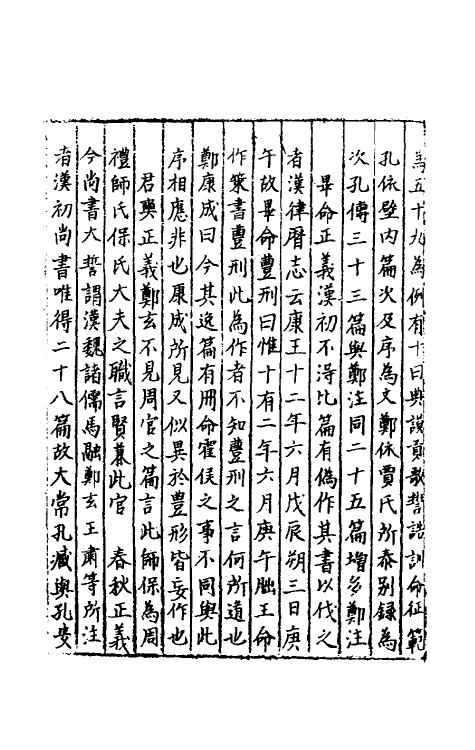 為五十九為例有十曰典謨貢歌誓誥訓命征範
孔依壁內篇次及序為文鄭依賈氏所奏別録為
次孔傳三十三篇與鄭注同二十五篇增多鄭注
畢命正義漢初不得比篇有偽作其書以伐之
者漢律曆志云康王十二年六月戊辰朔三日庚
午故畢命豐刑曰惟十有二年六月庚午朏王命
作策書豐刑此為作者不知豐刑之言何所道也
鄭康成曰今其逸篇有冊命霍侯之事不同與此
序相應非也康成所見又似異於豐形皆妄作也
君奭正義鄭玄不見周官之篇言此師保為周
禮師氏保氏大夫之職言賢慕此官　春秋正義
今尚書大誓謂漢魏諸儒馬融鄭玄王肅等所注
者漢初尚書唯得二十八篇故大常孔臧與孔安